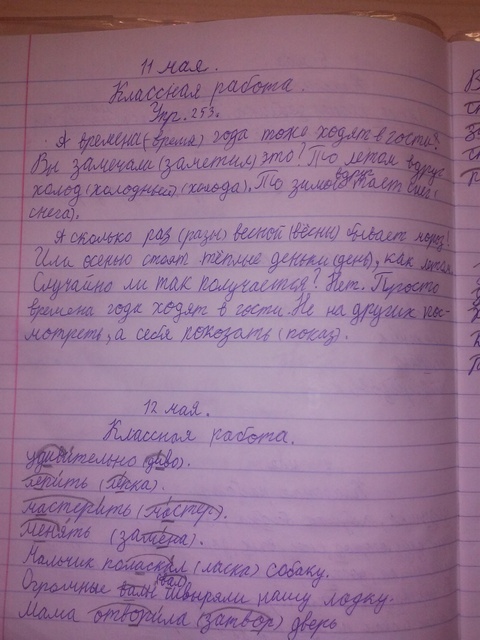 11 мая.
Классная работа.
Упр. 253.
А времена (время) года тоже ходят в гости?
Вы замечали (заметил) это? То летом вдруг
холод (холодный) (холода). То зимой вдруг тает снег (
снега).
А сколько раз (разы) весной (вёсны) бывает мороз!
Или осенью стоят тёплые деньки (день), как летом.
Случайно ли так получается? Нет. Просто
времена года ходят в гости. Не на других пос-
мотреть, а себя показать (показ).
12 мая.
Классная работа.
удивительно (диво).
(тёрка).
мастерить (мастер).
менять (замена).
Мальчик поласкал (ласка) собаку.
Огромные валы (вал) швыряли нашу лодку.
Мама отворила (затвор) дверь